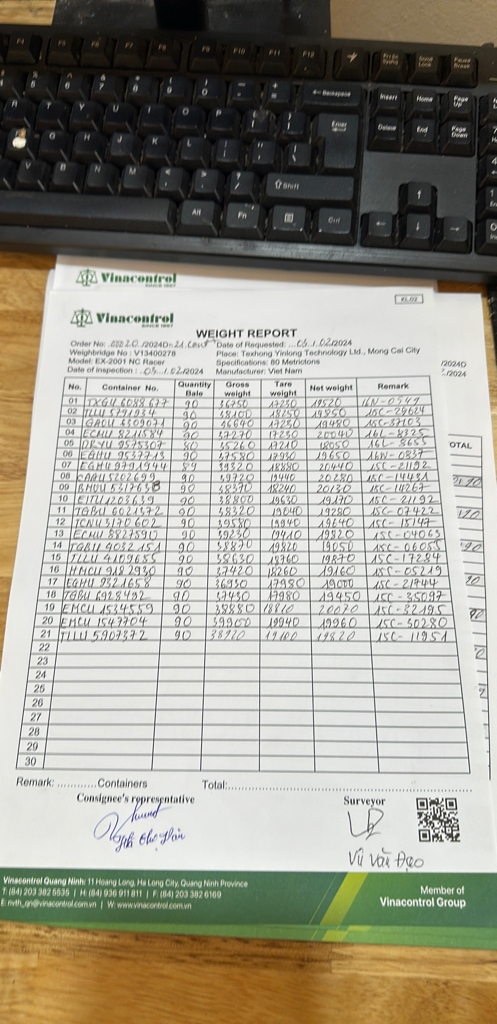 Vinacontrol
SINCE 1957
KL02
Vinacontrol
SINCE 1957
WEIGHT REPORT
Order No: /2024 Date of Requested: /02/2024
Weighbridge No: V13400278 Place: Texhong Yinlong Technology Ltd., Mong Cai City
Model: EX-2001 NC Racer Specifications: 80 Metrictons
Date of inspection: 05/02/2024 Manufacturer: Viet Nam
/2024D
/2024
No. Container No. Quantity Bale Gross weight Tare weight Net weight Remark
01 TXGU 6088677 90 36750 17230 19520 16N-0549
02 TLLU 5791934 90 38100 18250 19850 15C-29624
03 GAOU 6309071 90 36640 19480 15C-37103
04 ECMU 8211584 90 37270 17230 20040 16L-8225
05 90 35260 17210 18050 15C-8655
06 EGHU 9537713 90 37580 17930 19650 16N-0837
07 EGHU 9791944 89 39320 18880 20440 15C-21192
08 90 39720 19440 20280 15C-14431
09 BMOU 5317638 90 38370 18240 20130 15C-14267
10 EITU 1203639 90 38800 19630 19170 15C-21192
11 TGBU 6021372 90 38320 19040 19280 15C-07422
12 TCNU 3170602 90 39580 19940 19640 15C-15147
13 ECMU 8827590 90 39230 19410 19820 15C-04063
14 TGBU 4032151 90 38870 19820 19050 15C-06055
15 TLLU 4109655 90 38630 18760 19870 15C-17284
16 HMCU 9182930 90 37420 18260 19160 15C-05219
17 EGHU 9321658 90 36980 17980 19000 15C-21744
18 TGBU 6928492 90 37430 17980 19450 15C-35097
19 EMCU 1534559 90 38880 18810 20070 15C-32195
20 EMCU 1547704 90 39900 19940 19960 15C-30280
21 TLLU 5907372 90 38920 19100 19820 15C-11951
22
23
24
25
26
27
28
29
30
OTAL
Remark: ............Containers Total:
Consignee's representative Surveyor
Vũ Văn Đạo
Vinacontrol Quang Ninh: 11 Hoang Long, Ha Long City, Quang Ninh Province
T: (84) 203 382 5535 | H: (84) 936 911 811 | F: (84) 203 382 6169
E: nvth_qn@vinacontrol.com.vn | W: www.vinacontrol.com.vn
Member of
Vinacontrol Group